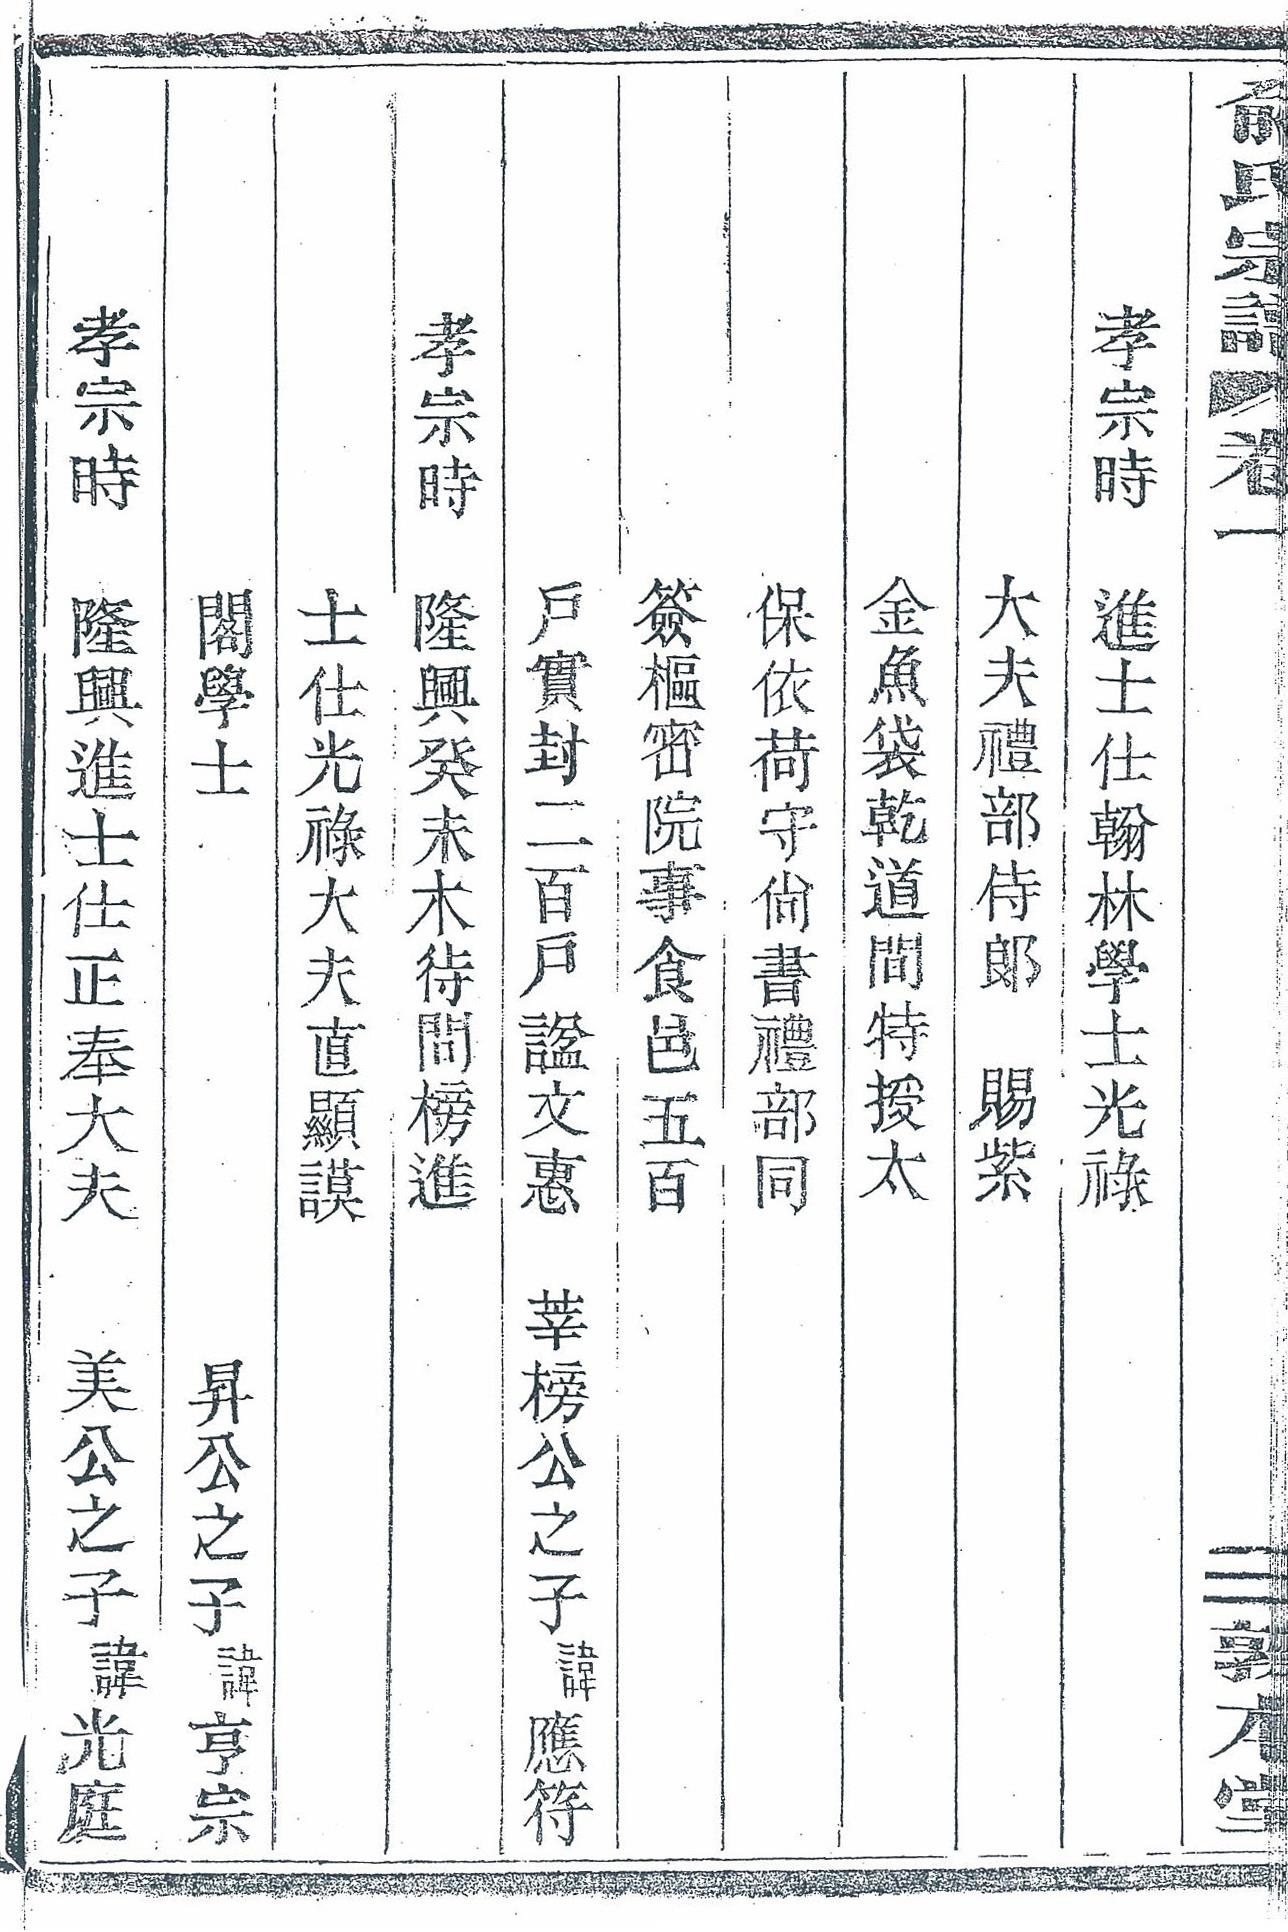 俞氏宗譜 卷一 三 敦本堂
孝宗時 進士仕翰林學士光祿
大夫禮部侍郎 賜紫
金魚袋乾道間特授太
保依荷守尙書禮部同
簽樞密院事食邑五百
戶實封二百戶諡文惠 莘榜公之子諱應符
孝宗時 隆興癸未木待問榜進
士仕光祿大夫直顯謨
閣學士 昇公之子諱亨宗
孝宗時 隆興進士仕正奉大夫 美公之子諱光庭